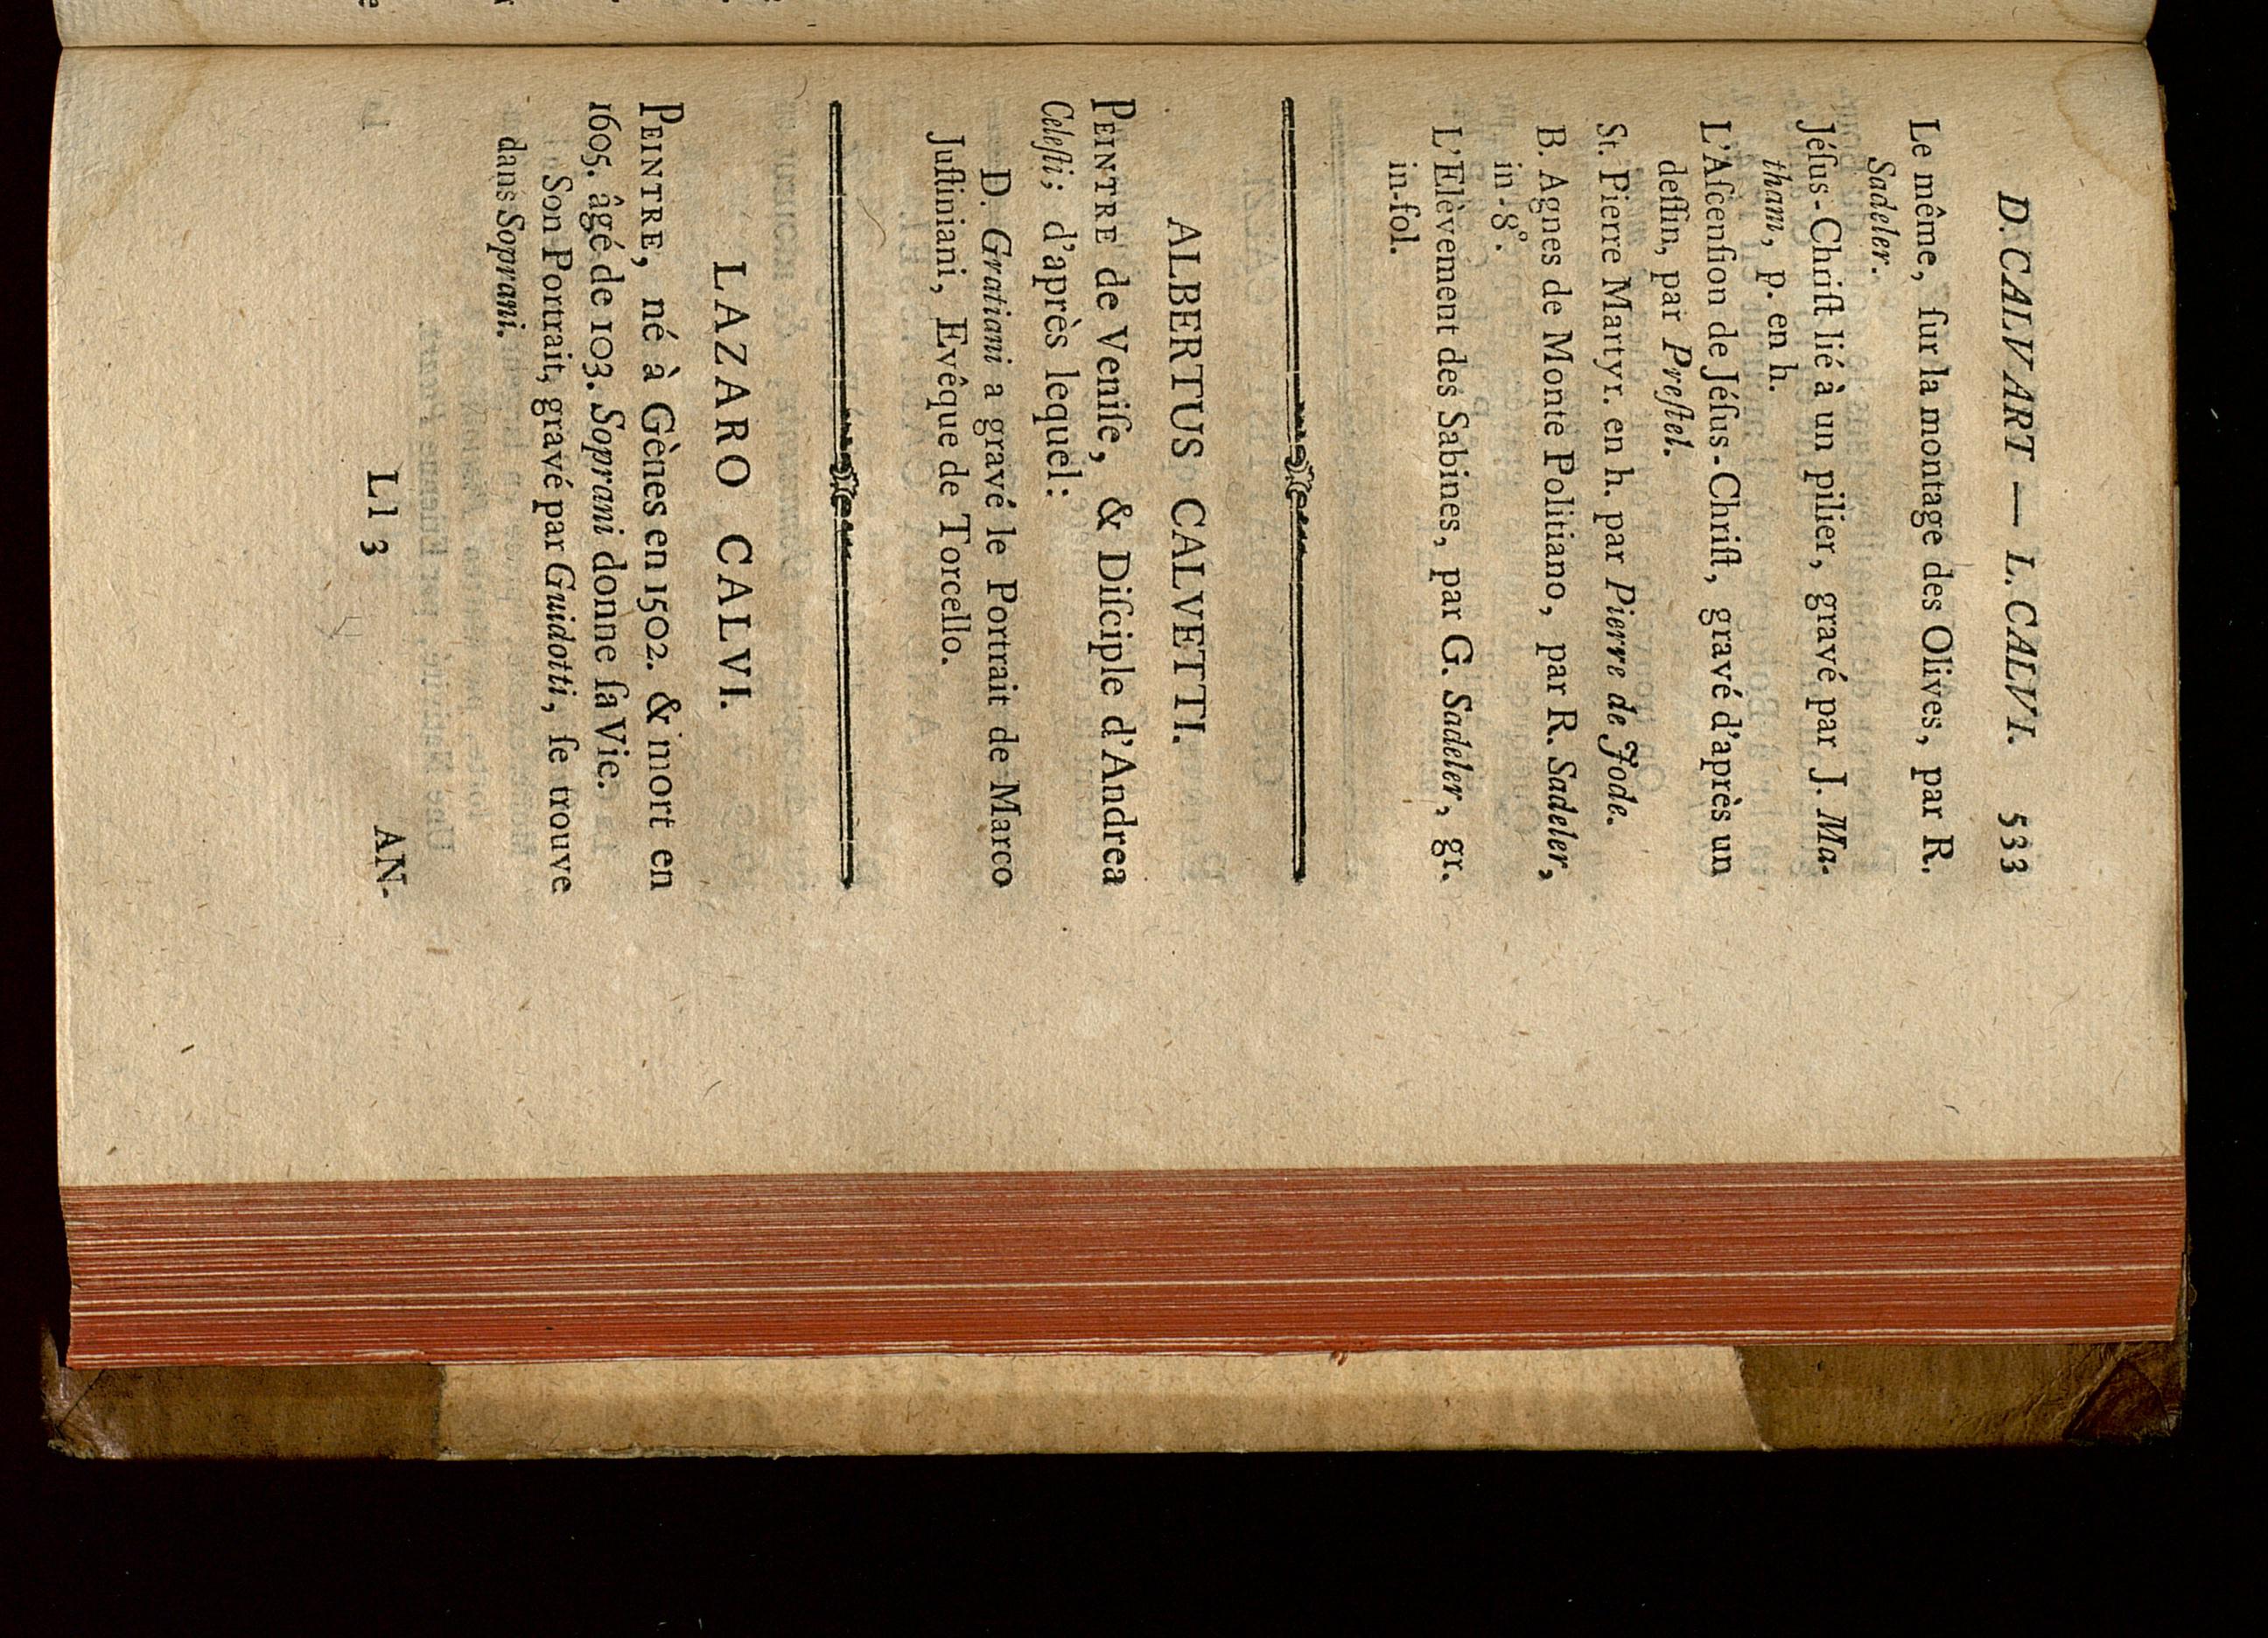 D. CALVART — L. CALVI. 533
Le même, ſur la montage des Olives, par R.
Sadeler.
Jéſus-Chriſt lié à un pilier, gravé par J. Ma-
tham, p. en h.
L'Aſcenſion de Jéſus-Chriſt, gravé d'après un
deſſin, par Preſtel.
St. Pierre Martyr. en h. par Pierre de Jode.
B. Agnes de Monte Politiano, par R. Sadeler,
in-8°.
L'Elèvement des Sabines, par G. Sadeler, gr.
in-fol.
ALBERTUS CALVETTI.
PEINTRE de Veniſe, & Diſciple d'Andrea
Celeſti; d'après lequel:
D. Gratiani a gravé le Portrait de Marco
Juſtiniani, Evêque de Torcello.
LAZARO CALVI.
PEINTRE, né à Gènes en 1502. & mort en
1605. âgé de 103. Soprani donne ſa Vie.
Son Portrait, gravé par Guidotti, ſe trouve
dans Soprani.
Ll 3
AN-